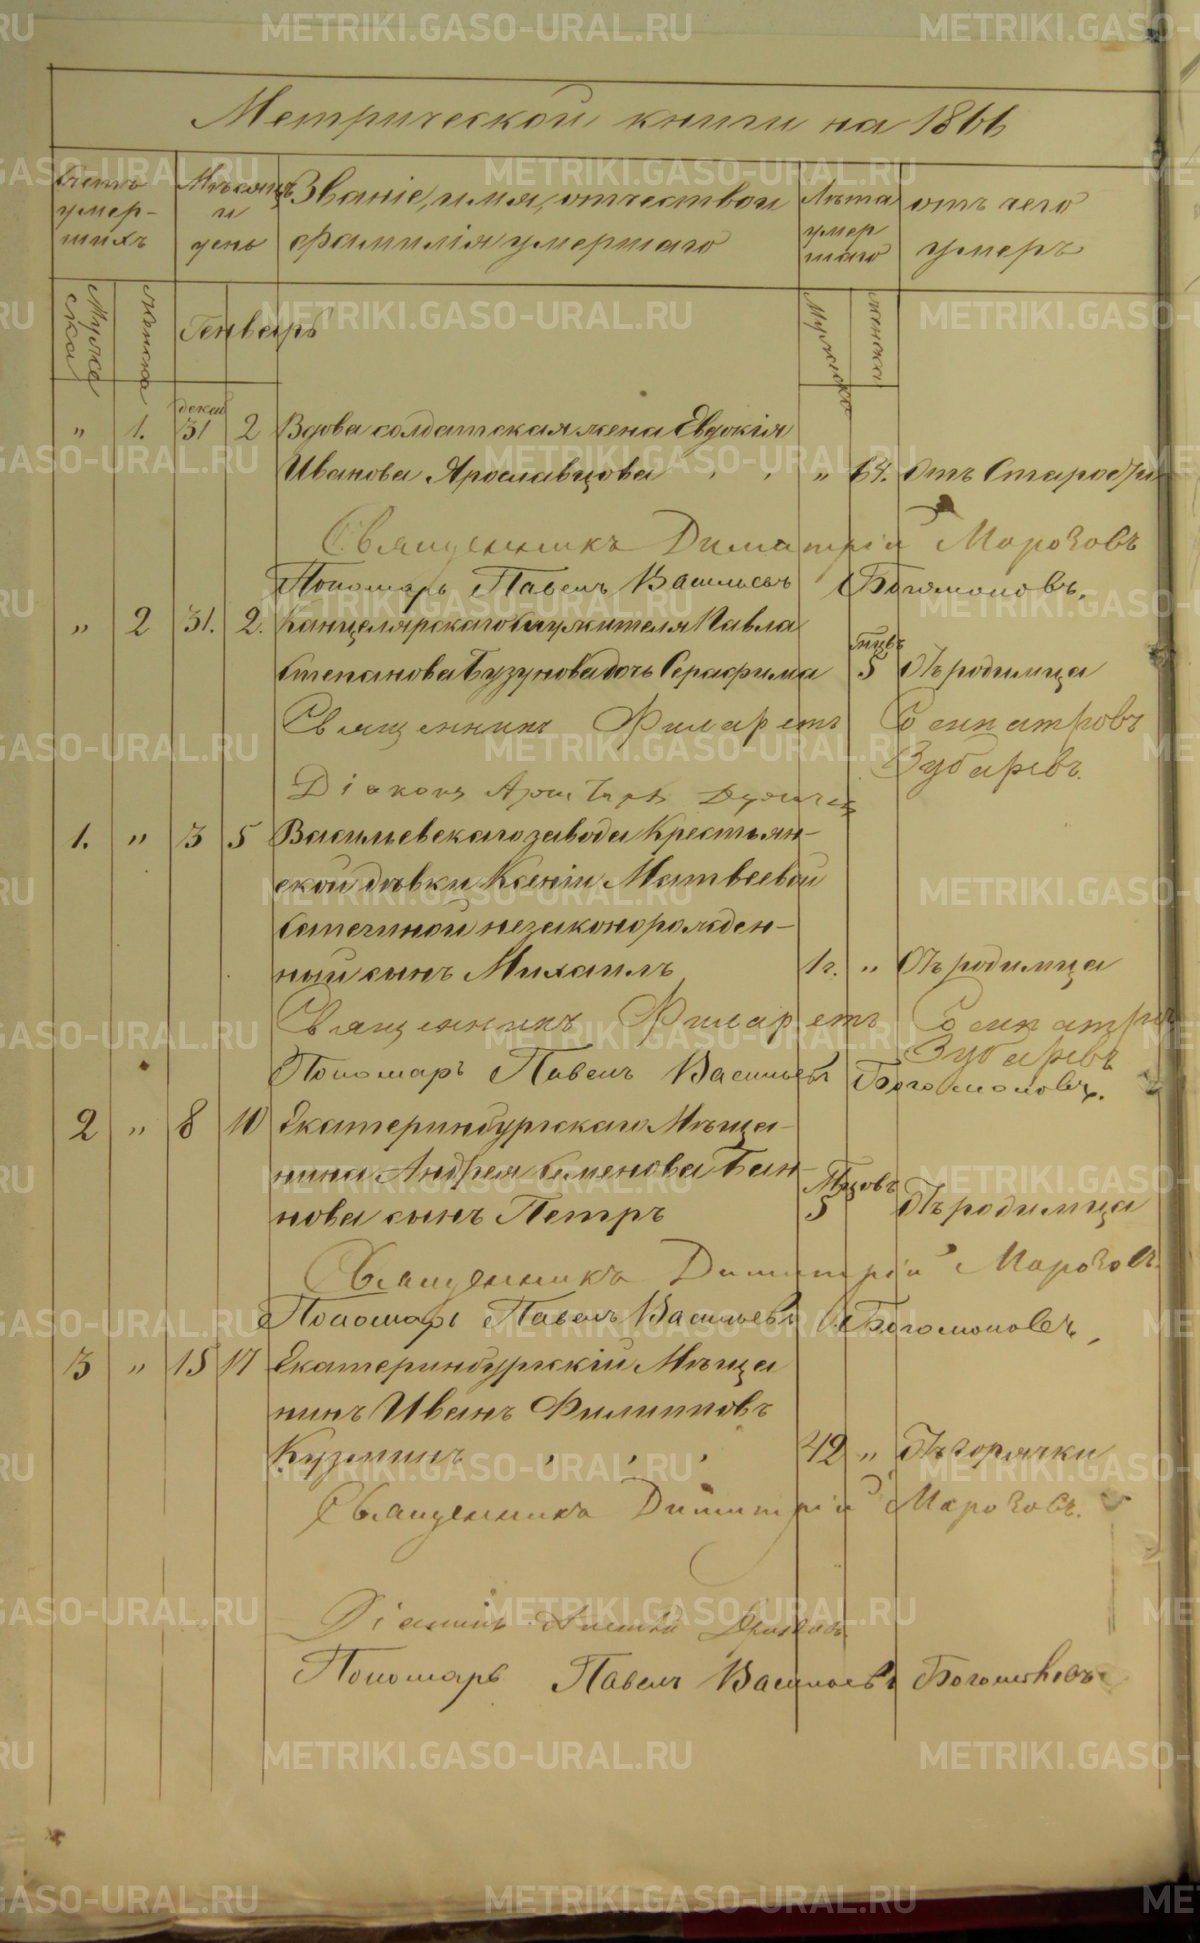 Метрической книги на 1866
Счетъ умер-шихъ
Мѣсяцъ и день
Званіе, имя, отчество и фамилія умершаго
Лѣта умершаго
отъ чего умеръ
Мужеска
женска
Генварь
Мужеска
женска
" 1. декаб 31 2 Вдова солдатская жена Евдокія
Иванова Ярославцова " 64. Отъ Старости
Священникъ Димитрій Морозовъ
Пономарь Павелъ Васильевъ Богомоловъ.
" 2 31. 2. Канцелярскаго служителя Павла
Степанова Бузунова дочь Серафима мцвъ 5 Отъ родимца
Священникъ Филаретъ Сосипатровъ
Зубаревъ.
Діаконъ
1. " 3 5 Васильевскаго завода Крестьян-
ской дѣвки Ксеніи Матвеевой
незаконорожден-
ный сынъ Михаилъ 1 г. " Отъ родимца
Священникъ Филаретъ
Зубаревъ
Пономарь Павелъ Васильевъ Богомоловъ.
2 " 8 10 Екатеринбургскаго Мѣща-
нина Андрея Семенова Бан-
нова сынъ Петръ Мцовъ 5 Отъ родимца
Священникъ Димитрій Морозовъ.
Пономарь Павелъ Васильевъ Богомоловъ,
3 " 15 17 Екатеринбургскій Мѣща
нинъ Иванъ Филипповъ
Кузминъ 42 " Отъ горячки
Священникъ Димитрій Морозовъ.
Пономарь Павелъ Васильевъ Богомоловъ
METRIKI.GASO-URAL.RU